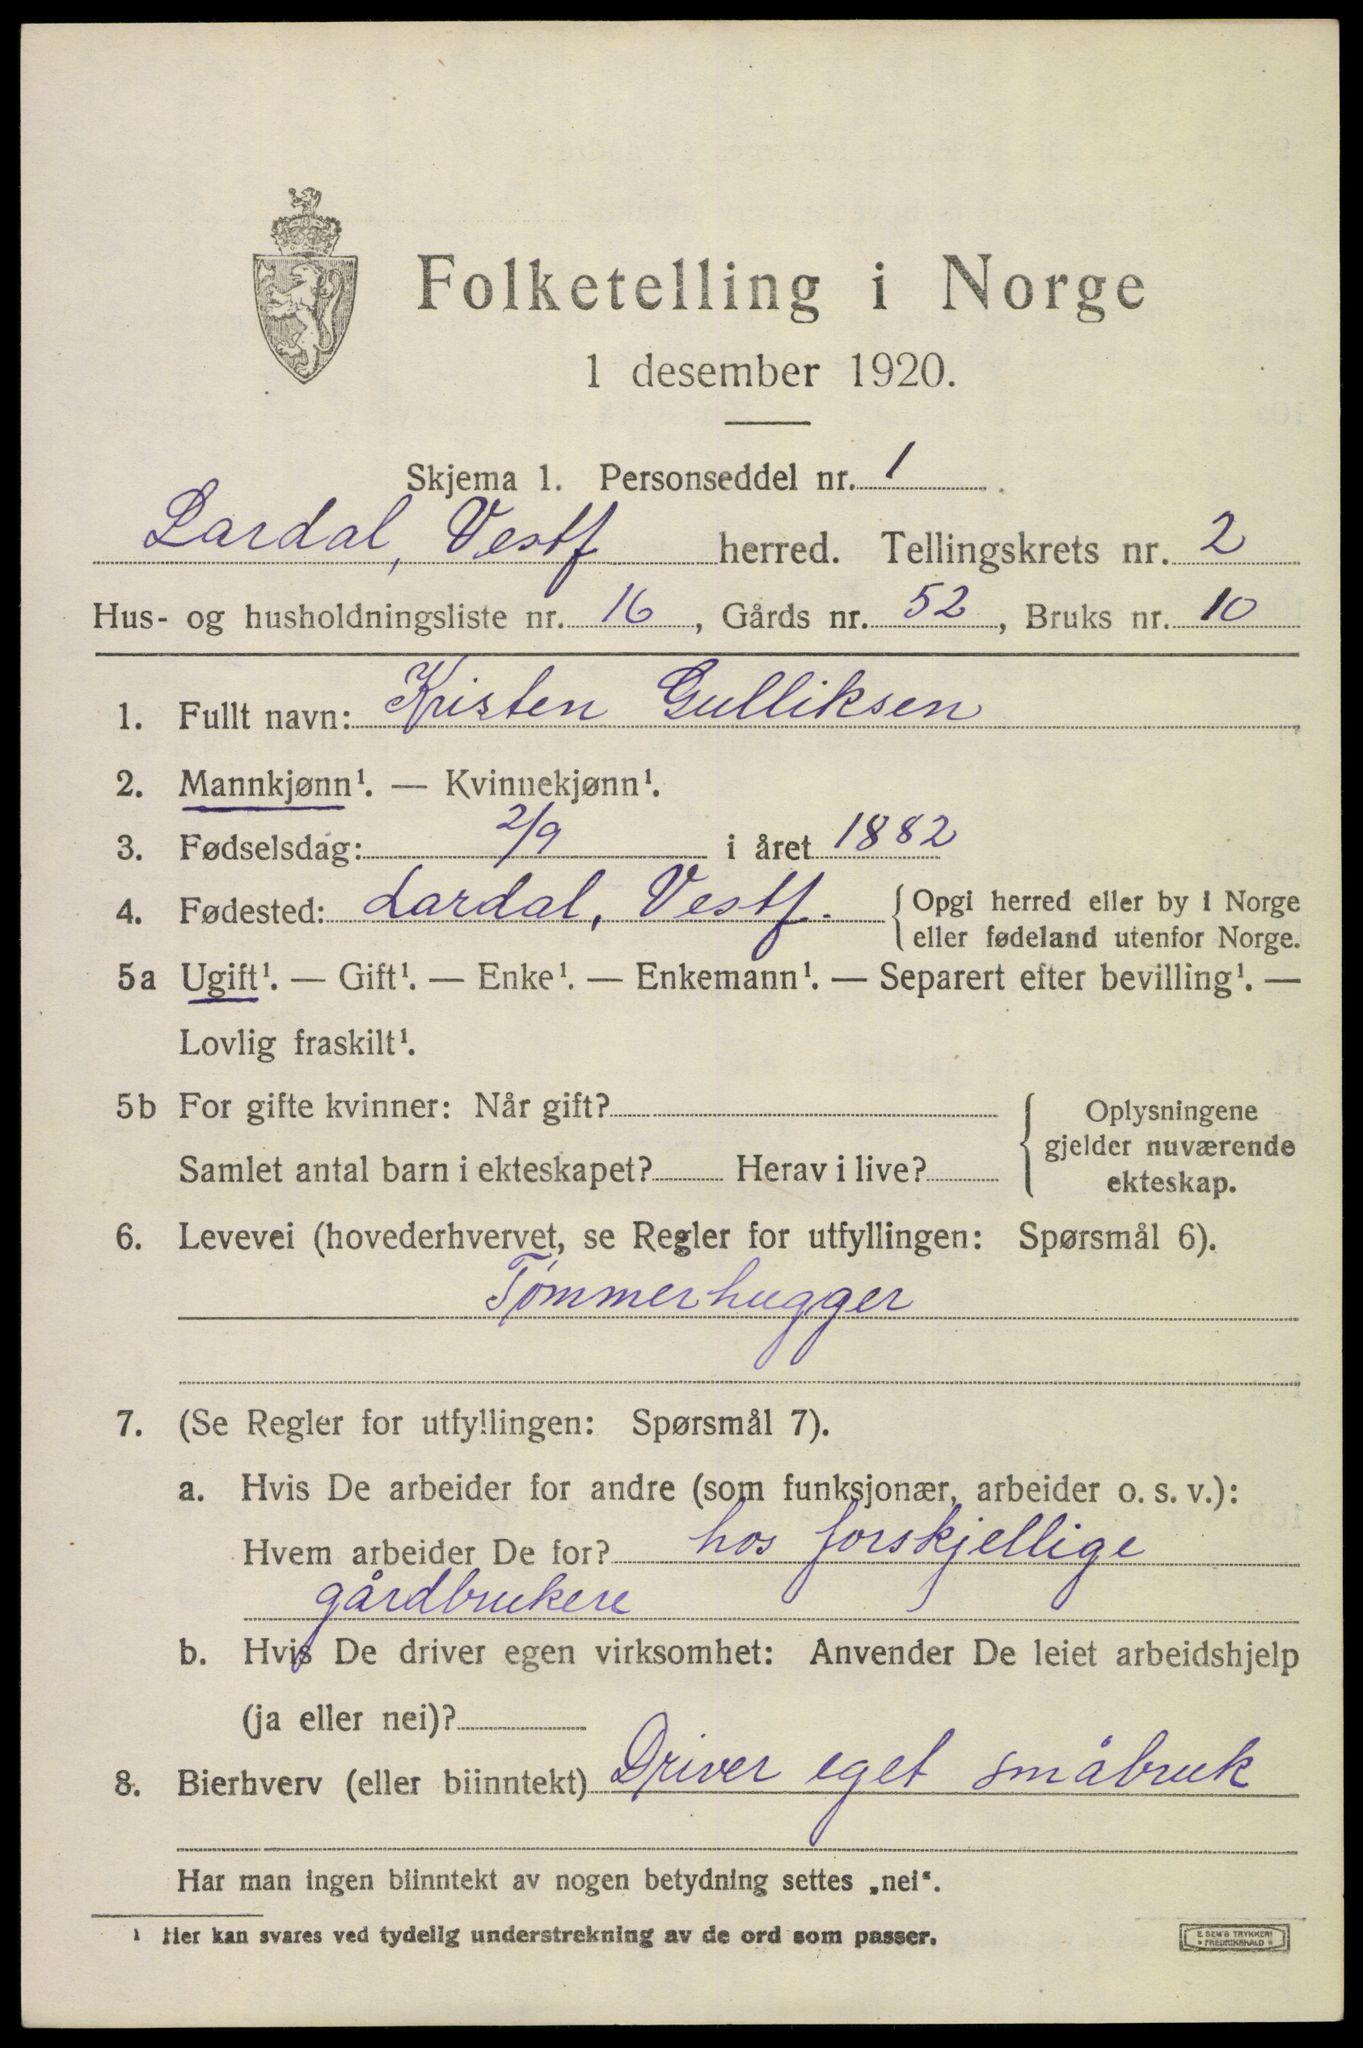 Folketelling i Norge
1 desember 1920.
Skjema 1. Personseddel nr. 1
Lardal, Vestf herred. Tellingskrets nr. 2
Hus- og husholdningsliste nr. 16, Gårds nr. 52, Bruks nr. 10
1. Fullt navn: Kristen Gulliksen
2. Mannkjønn¹. — Kvinnekjønn¹.
3. Fødselsdag: 2/9 i året 1882
4. Fødested: Lardal, Vestf. { Opgi herred eller by i Norge
eller fødeland utenfor Norge.
5a Ugift¹. — Gift¹. — Enke¹. — Enkemann¹. — Separert efter bevilling¹. —
Lovlig fraskilt¹.
5b For gifte kvinner: Når gift? { Oplysningene
gjelder nuværende
Samlet antal barn i ekteskapet? Herav i live? ekteskap.
6. Levevei (hovederhvervet, se Regler for utfyllingen: Spørsmål 6).
Tømmerhugger
7. (Se Regler for utfyllingen: Spørsmål 7).
a. Hvis De arbeider for andre (som funksjonær, arbeider o. s. v.):
Hvem arbeider De for? hos forskjellige
gårdbrukere
b. Hvis De driver egen virksomhet: Anvender De leiet arbeidshjelp
(ja eller nei)?
8. Bierhverv (eller biinntekt) Driver eget småbruk
Har man ingen biinntekt av nogen betydning settes „nei“.
¹ Her kan svares ved tydelig understrekning av de ord som passer.
E SEM'S TRYKKERI
* FREDRIKSHALD *